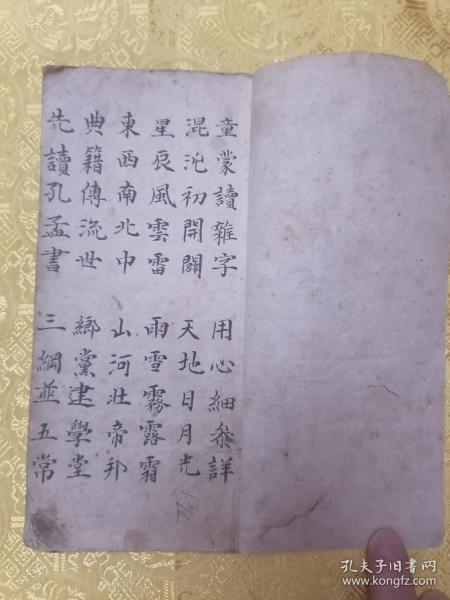 童蒙讀雜字 用心細參詳
混沌初開闢 天地日月光
星辰風雲雷 雨雪霧露霜
東西南北中 山河壯帝邦
典籍傳流世 鄉黨建學堂
先讀孔孟書 三綱並五常
孔夫子旧书网
www.kongfz.com